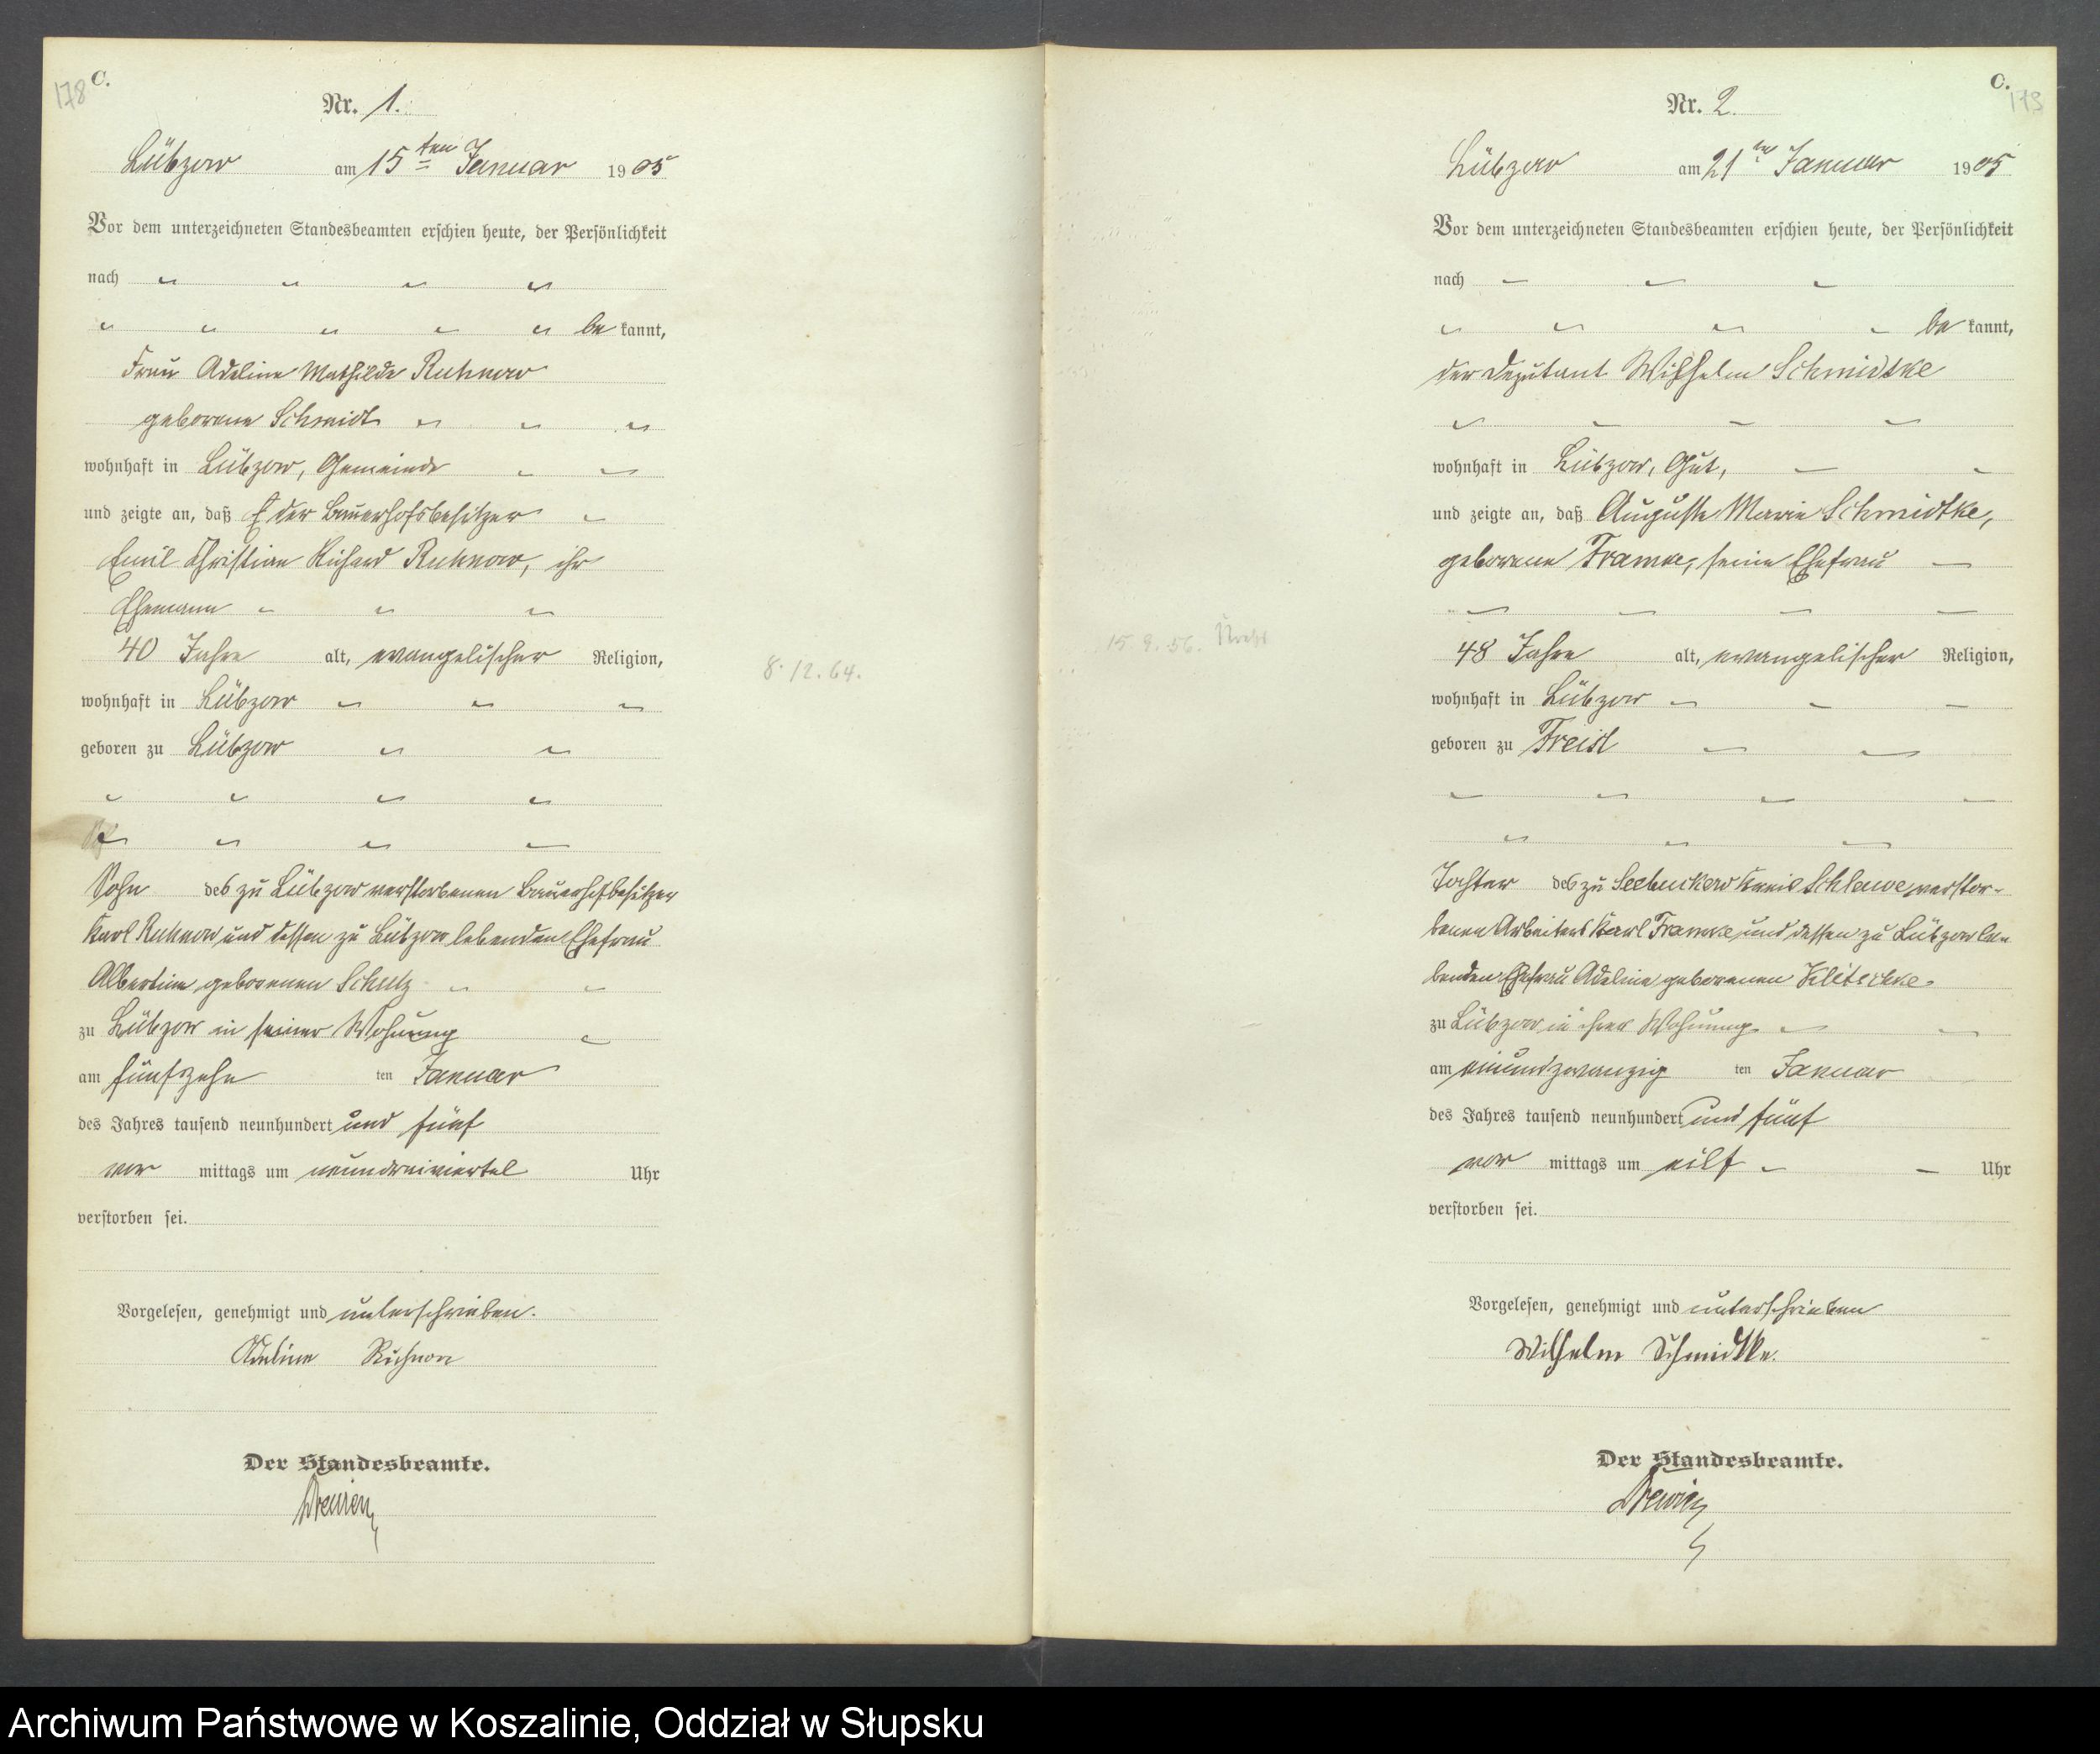 178 C.
Nr. 1.
Lübzow am 15ten Januar 1905
Vor dem unterzeichneten Standesbeamten erschien heute, der Persönlichkeit
nach
be kannt,
Frau Adeline Mathilde Ruhnow
geborene Schmidt
wohnhaft in Lübzow, Gemeinde
und zeigte an, daß der Bauerhofsbesitzer
Emil Christian Richard Ruhnow, ihr
Ehemann
40 Jahre alt, evangelischer Religion,
8.12.64.
wohnhaft in Lübzow
geboren zu Lübzow
Sohn des zu Lübzow verstorbenen Bauerhofbesitzer
Karl Ruhnow und dessen zu Lübzow lebenden Ehefrau
Albertine geborenen Schulz
zu Lübzow in seiner Wohnung
am fünfzehn ten Januar
des Jahres tausend neunhundert und fünf
vor mittags um neundreiviertel Uhr
verstorben sei.
Vorgelesen, genehmigt und unterschrieben.
Adeline Ruhnow
Der Standesbeamte.
C.
179
Nr. 2.
Lübzow am 21ten Januar 1905
Vor dem unterzeichneten Standesbeamten erschien heute, der Persönlichkeit
nach
be kannt,
der Deputant Wilhelm Schmidtke
wohnhaft in Lübzow, Gut,
und zeigte an, daß Auguste Marie Schmidtke,
geborene Framke, seine Ehefrau
15 9.56.
48 Jahre alt, evangelischer Religion,
wohnhaft in Lübzow
geboren zu Freist
Tochter des zu Seebuckow Kreis Schlawe verstor-
benen Arbeiters Karl Framke und dessen zu Lübzow le-
benden Ehefrau Adeline geborenen
zu Lübzow in ihrer Wohnung
am einundzwanzig ten Januar
des Jahres tausend neunhundert und fünf
vor mittags um eilf Uhr
verstorben sei.
Vorgelesen, genehmigt und unterschrieben
Wilhelm Schmidtke.
Der Standesbeamte.
Archiwum Państwowe w Koszalinie, Oddział w Słupsku